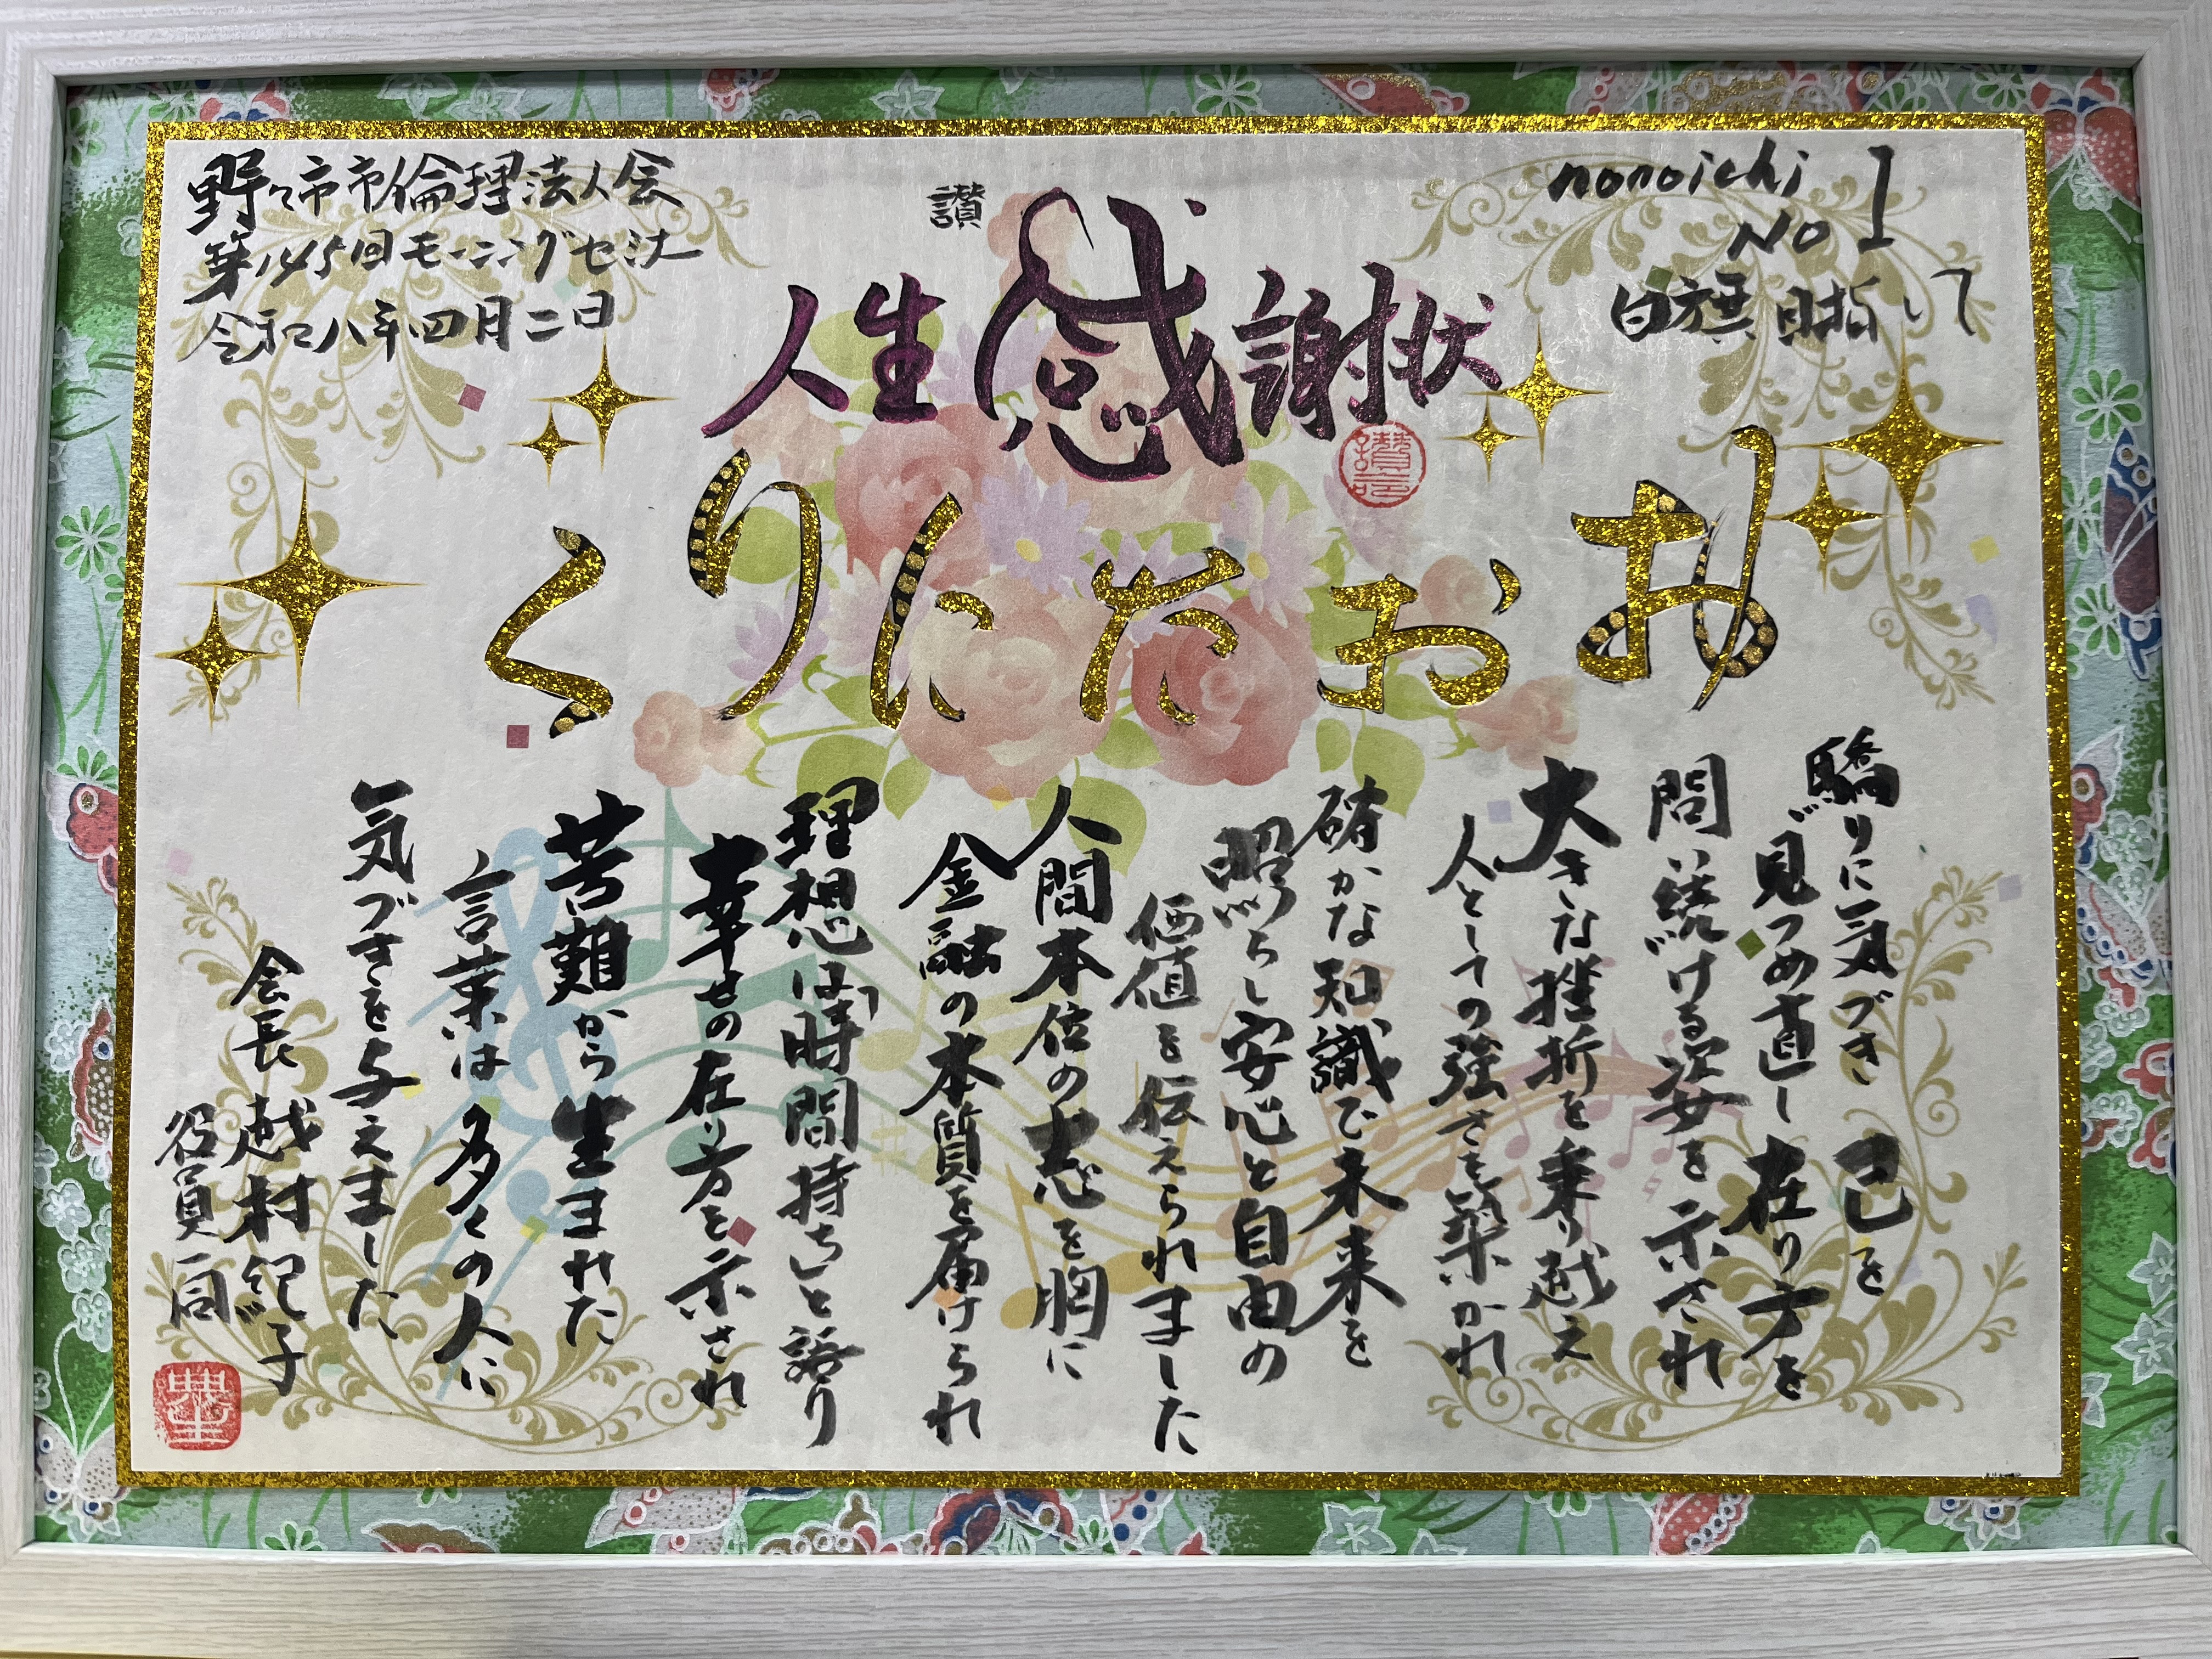 野々市市倫理法人会
第145回モーニングセミナー
令和八年四月二日
讃
人生感謝状
nonoichi
NO 1
白旗目指して
おおたにりく
驕りに気づき 己を
見つめ直し在り方を
問い続ける姿を示され
大きな挫折を乗り越え
人としての強さを築かれ
確かな知識で未来を
照らし安心と自由の
価値を伝えられました
人間本位の志を胸に
金融の本質を届けられ
理想は「時間持ち」と語り
幸せの在り方を示され
苦難から生まれた
言葉は多くの人に
気づきを与えました
会長 越村紀子
役員一同